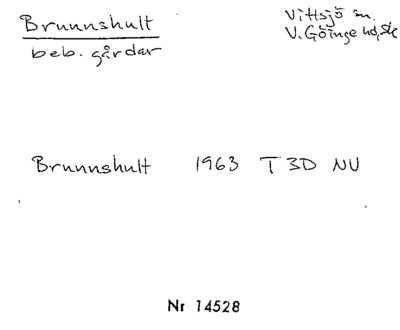 Brunnshult
beb. gårdar
Vittsjö sn.
V. Göinge hd, Sk
Brunnshult 1963 T 3D NU
Nr 14528